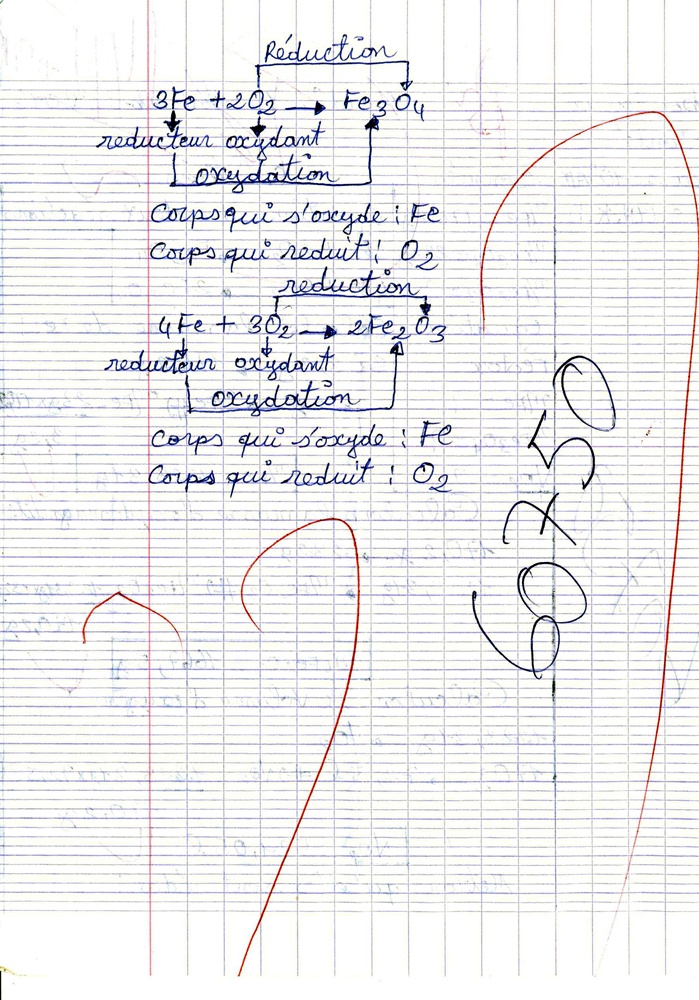 Réduction
3Fe + 2O₂ → Fe₃O₄
reducteur oxydant
oxydation
Corps qui s'oxyde : Fe
Corps qui reduit : O₂
reduction
4Fe + 3O₂ → 2Fe₂O₃
reducteur oxydant
oxydation
Corps qui s'oxyde : Fe
Corps qui reduit : O₂